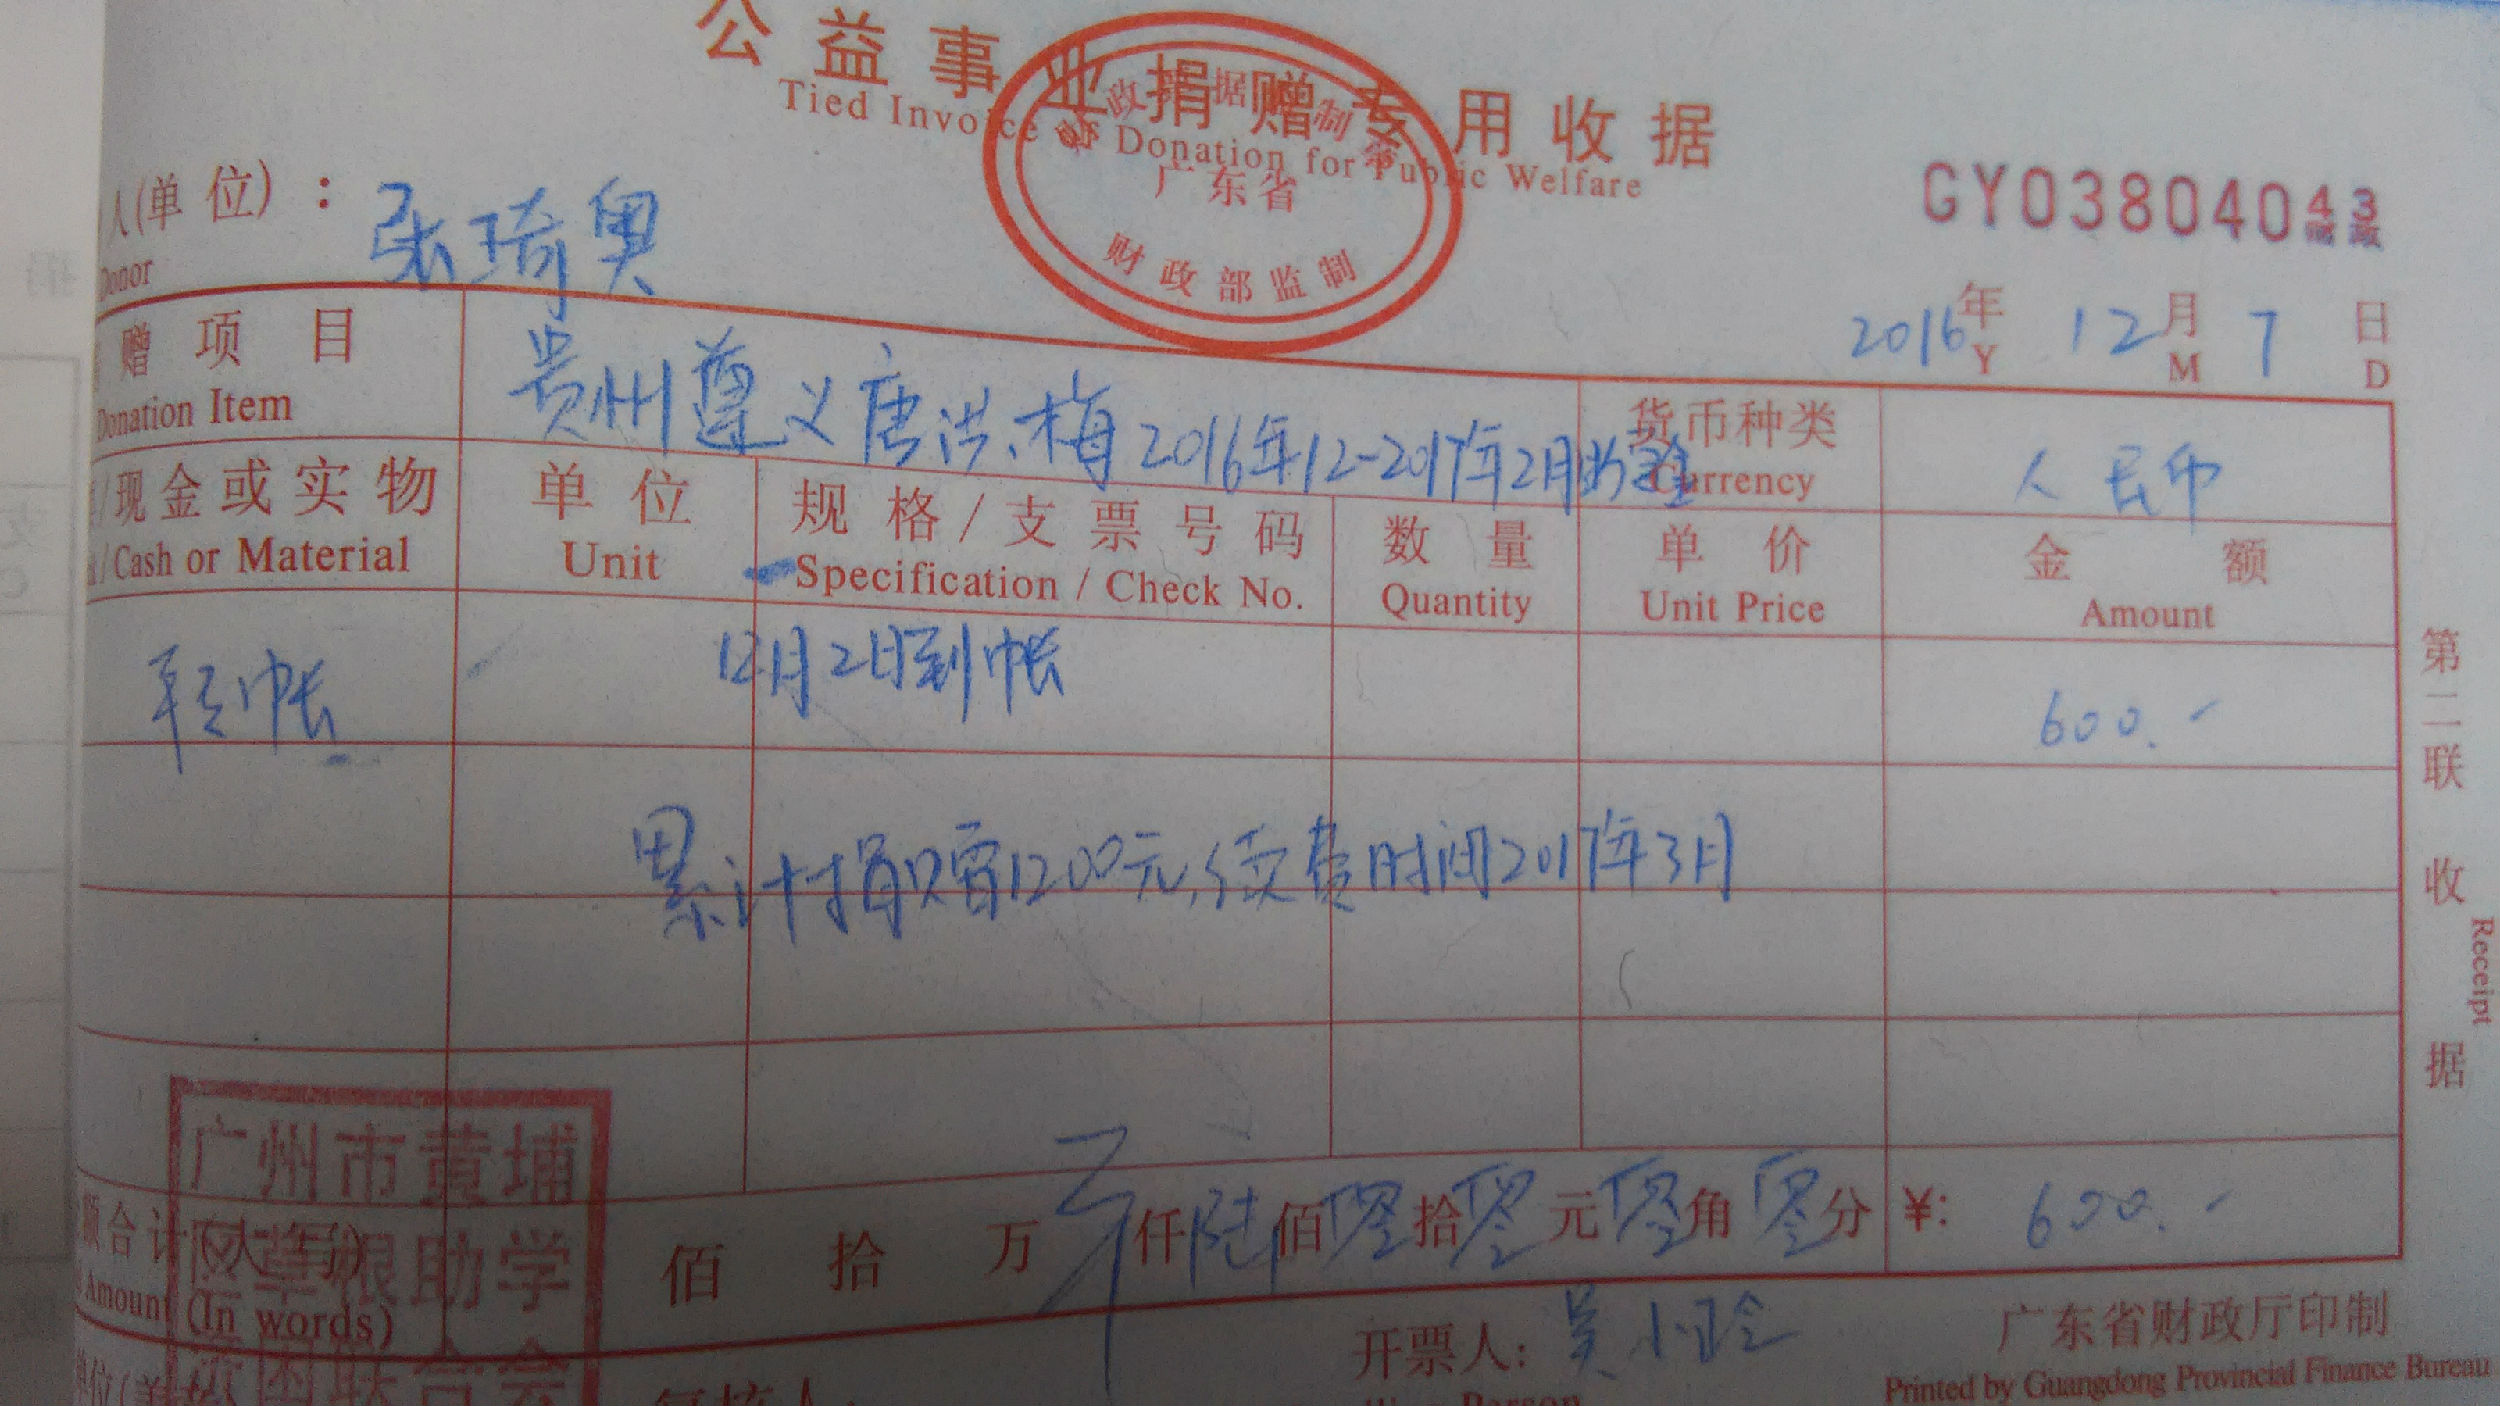 公益事业捐赠专用收据
Tied Invoice of Donation for Public Welfare
财政票据监制章
广东省
财政部监制
GY03804043
人(单位)：张琦奥
Donor
2016年 12月 7日
Y M D
赠项目
Donation Item
贵州遵义唐洪梅2016年12-2017年2月助学
货币种类
Currency
人民币
/现金或实物
/Cash or Material
单位
Unit
规格/支票号码
Specification / Check No.
数量
Quantity
单价
Unit Price
金额
Amount
转帐
12月2日到帐
600.-
累计捐赠1200元,续费时间2017年3月
第二联 收据
Receipt
额合计(大写)
Amount (In words)
佰 拾 万 仟陆佰零拾零元零角零分
¥: 600.-
广州市黄埔
区草根助学
联合会
开票人: 吴小玲
复核人:
广东省财政厅印制
Printed by Guangdong Provincial Finance Bureau